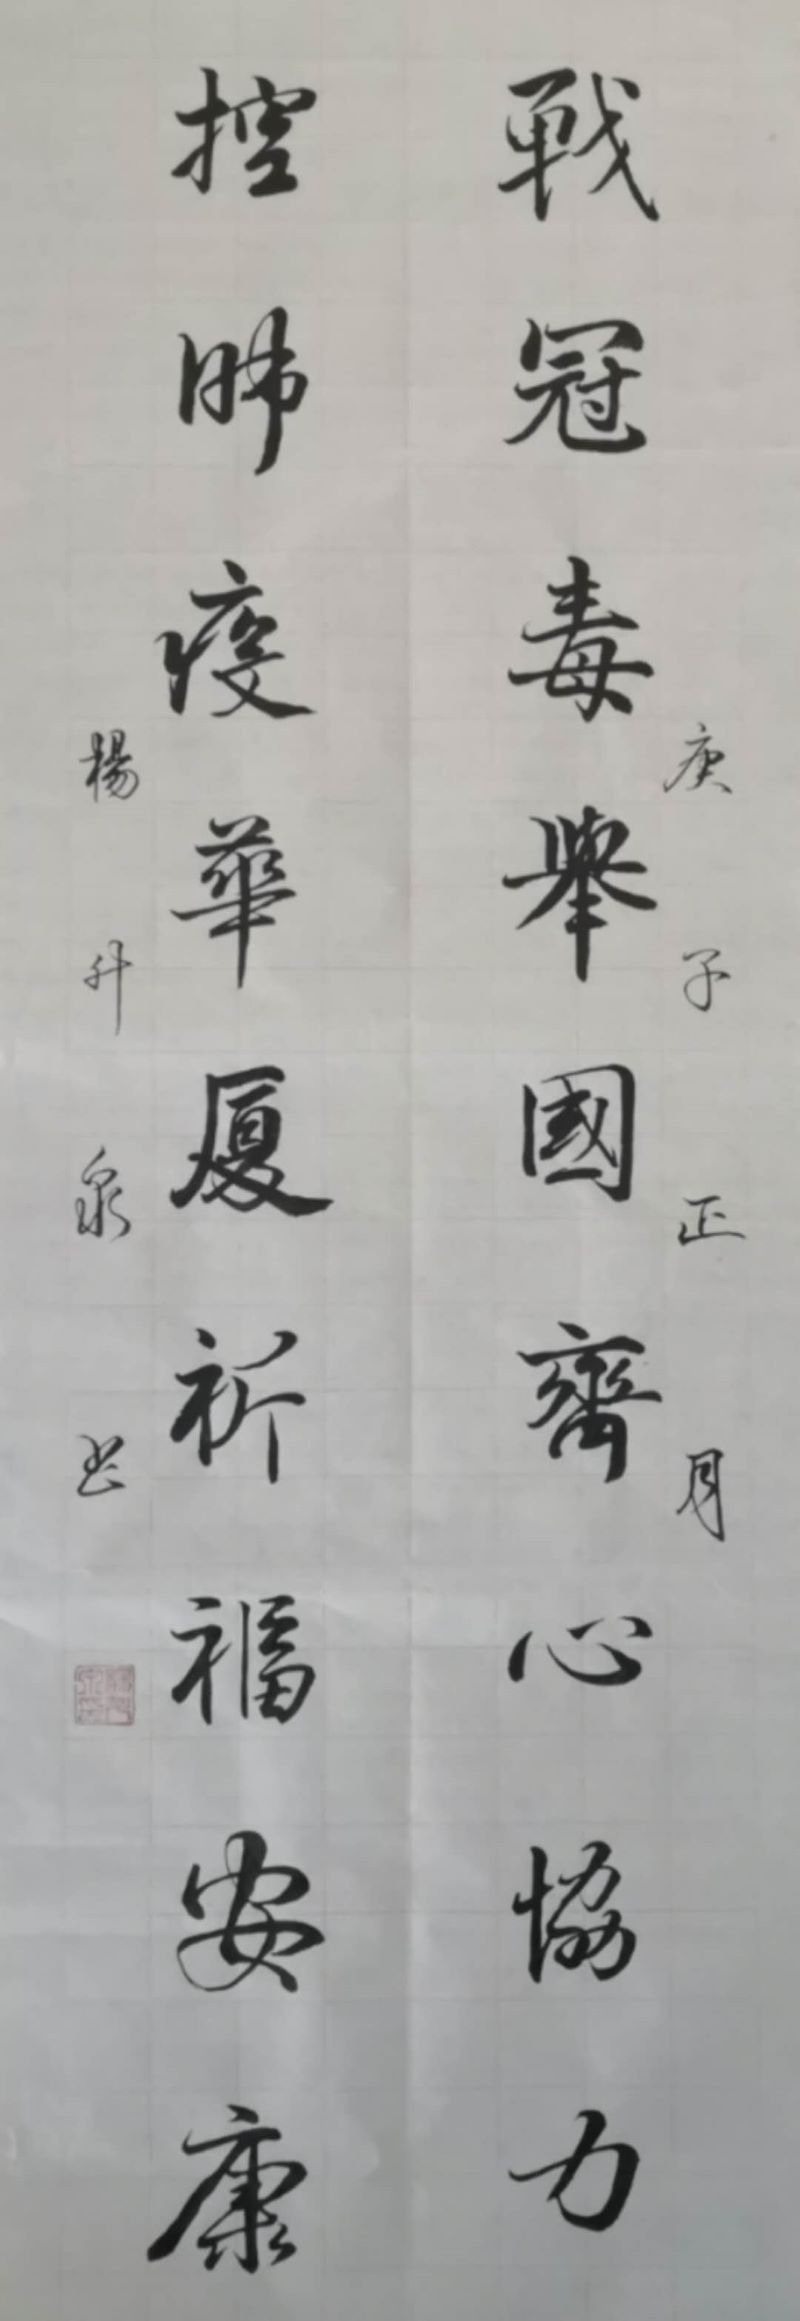 庚子正月
戰冠毒舉國齊心協力
控肺疫華厦祈福安康
楊升泉书